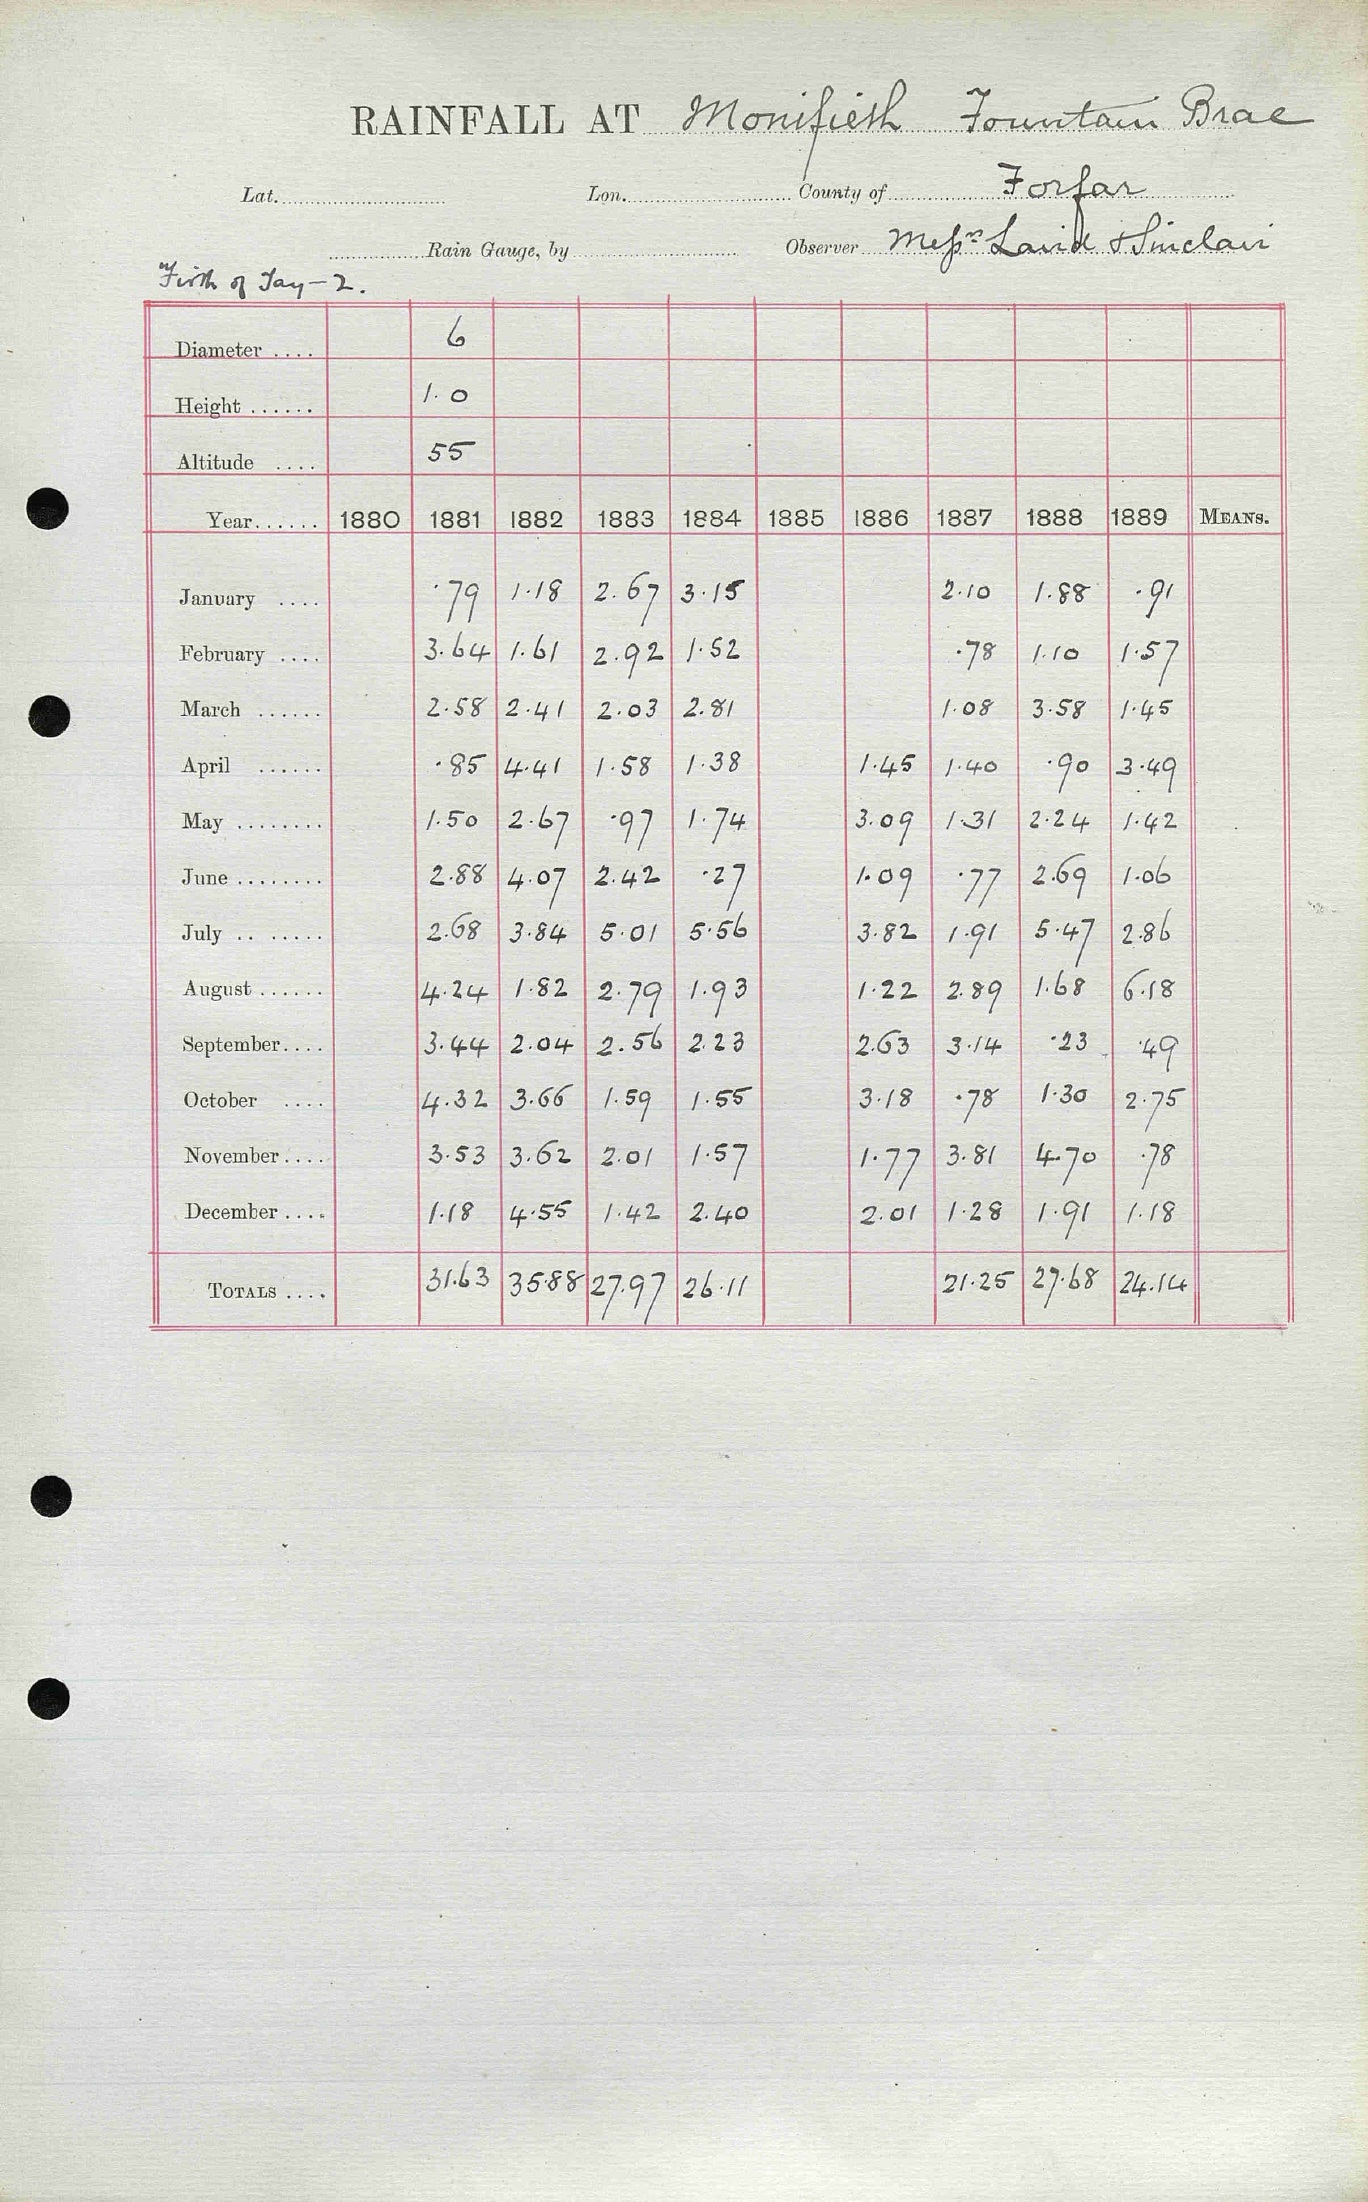 RAINFALL AT Monifieth Fountain Brae
Lat. Lon. County of Forfar
Rain Gauge, by Observer Messrs Laird & Sinclair
Firth of Tay - 2.
Diameter .... 6
Height ...... 1.0
Altitude .... 55
Year...... 1880 1881 1882 1883 1884 1885 1886 1887 1888 1889 MEANS.
January .... .79 1.18 2.67 3.15 2.10 1.88 .91
February .... 3.64 1.61 2.92 1.52 .78 1.10 1.57
March ...... 2.58 2.41 2.03 2.81 1.08 3.58 1.45
April ...... .85 4.41 1.58 1.38 1.45 1.40 .90 3.49
May ........ 1.50 2.67 .97 1.74 3.09 1.31 2.24 1.42
June ........ 2.88 4.07 2.42 .27 1.09 .77 2.69 1.06
July .. ...... 2.68 3.84 5.01 5.56 3.82 1.91 5.47 2.86
August ...... 4.24 1.82 2.79 1.93 1.22 2.89 1.68 6.18
September.... 3.44 2.04 2.56 2.23 2.63 3.14 .23 .49
October .... 4.32 3.66 1.59 1.55 3.18 .78 1.30 2.75
November.... 3.53 3.62 2.01 1.57 1.77 3.81 4.70 .78
December .... 1.18 4.55 1.42 2.40 2.01 1.28 1.91 1.18
TOTALS .... 31.63 35.88 27.97 26.11 21.25 27.68 24.14